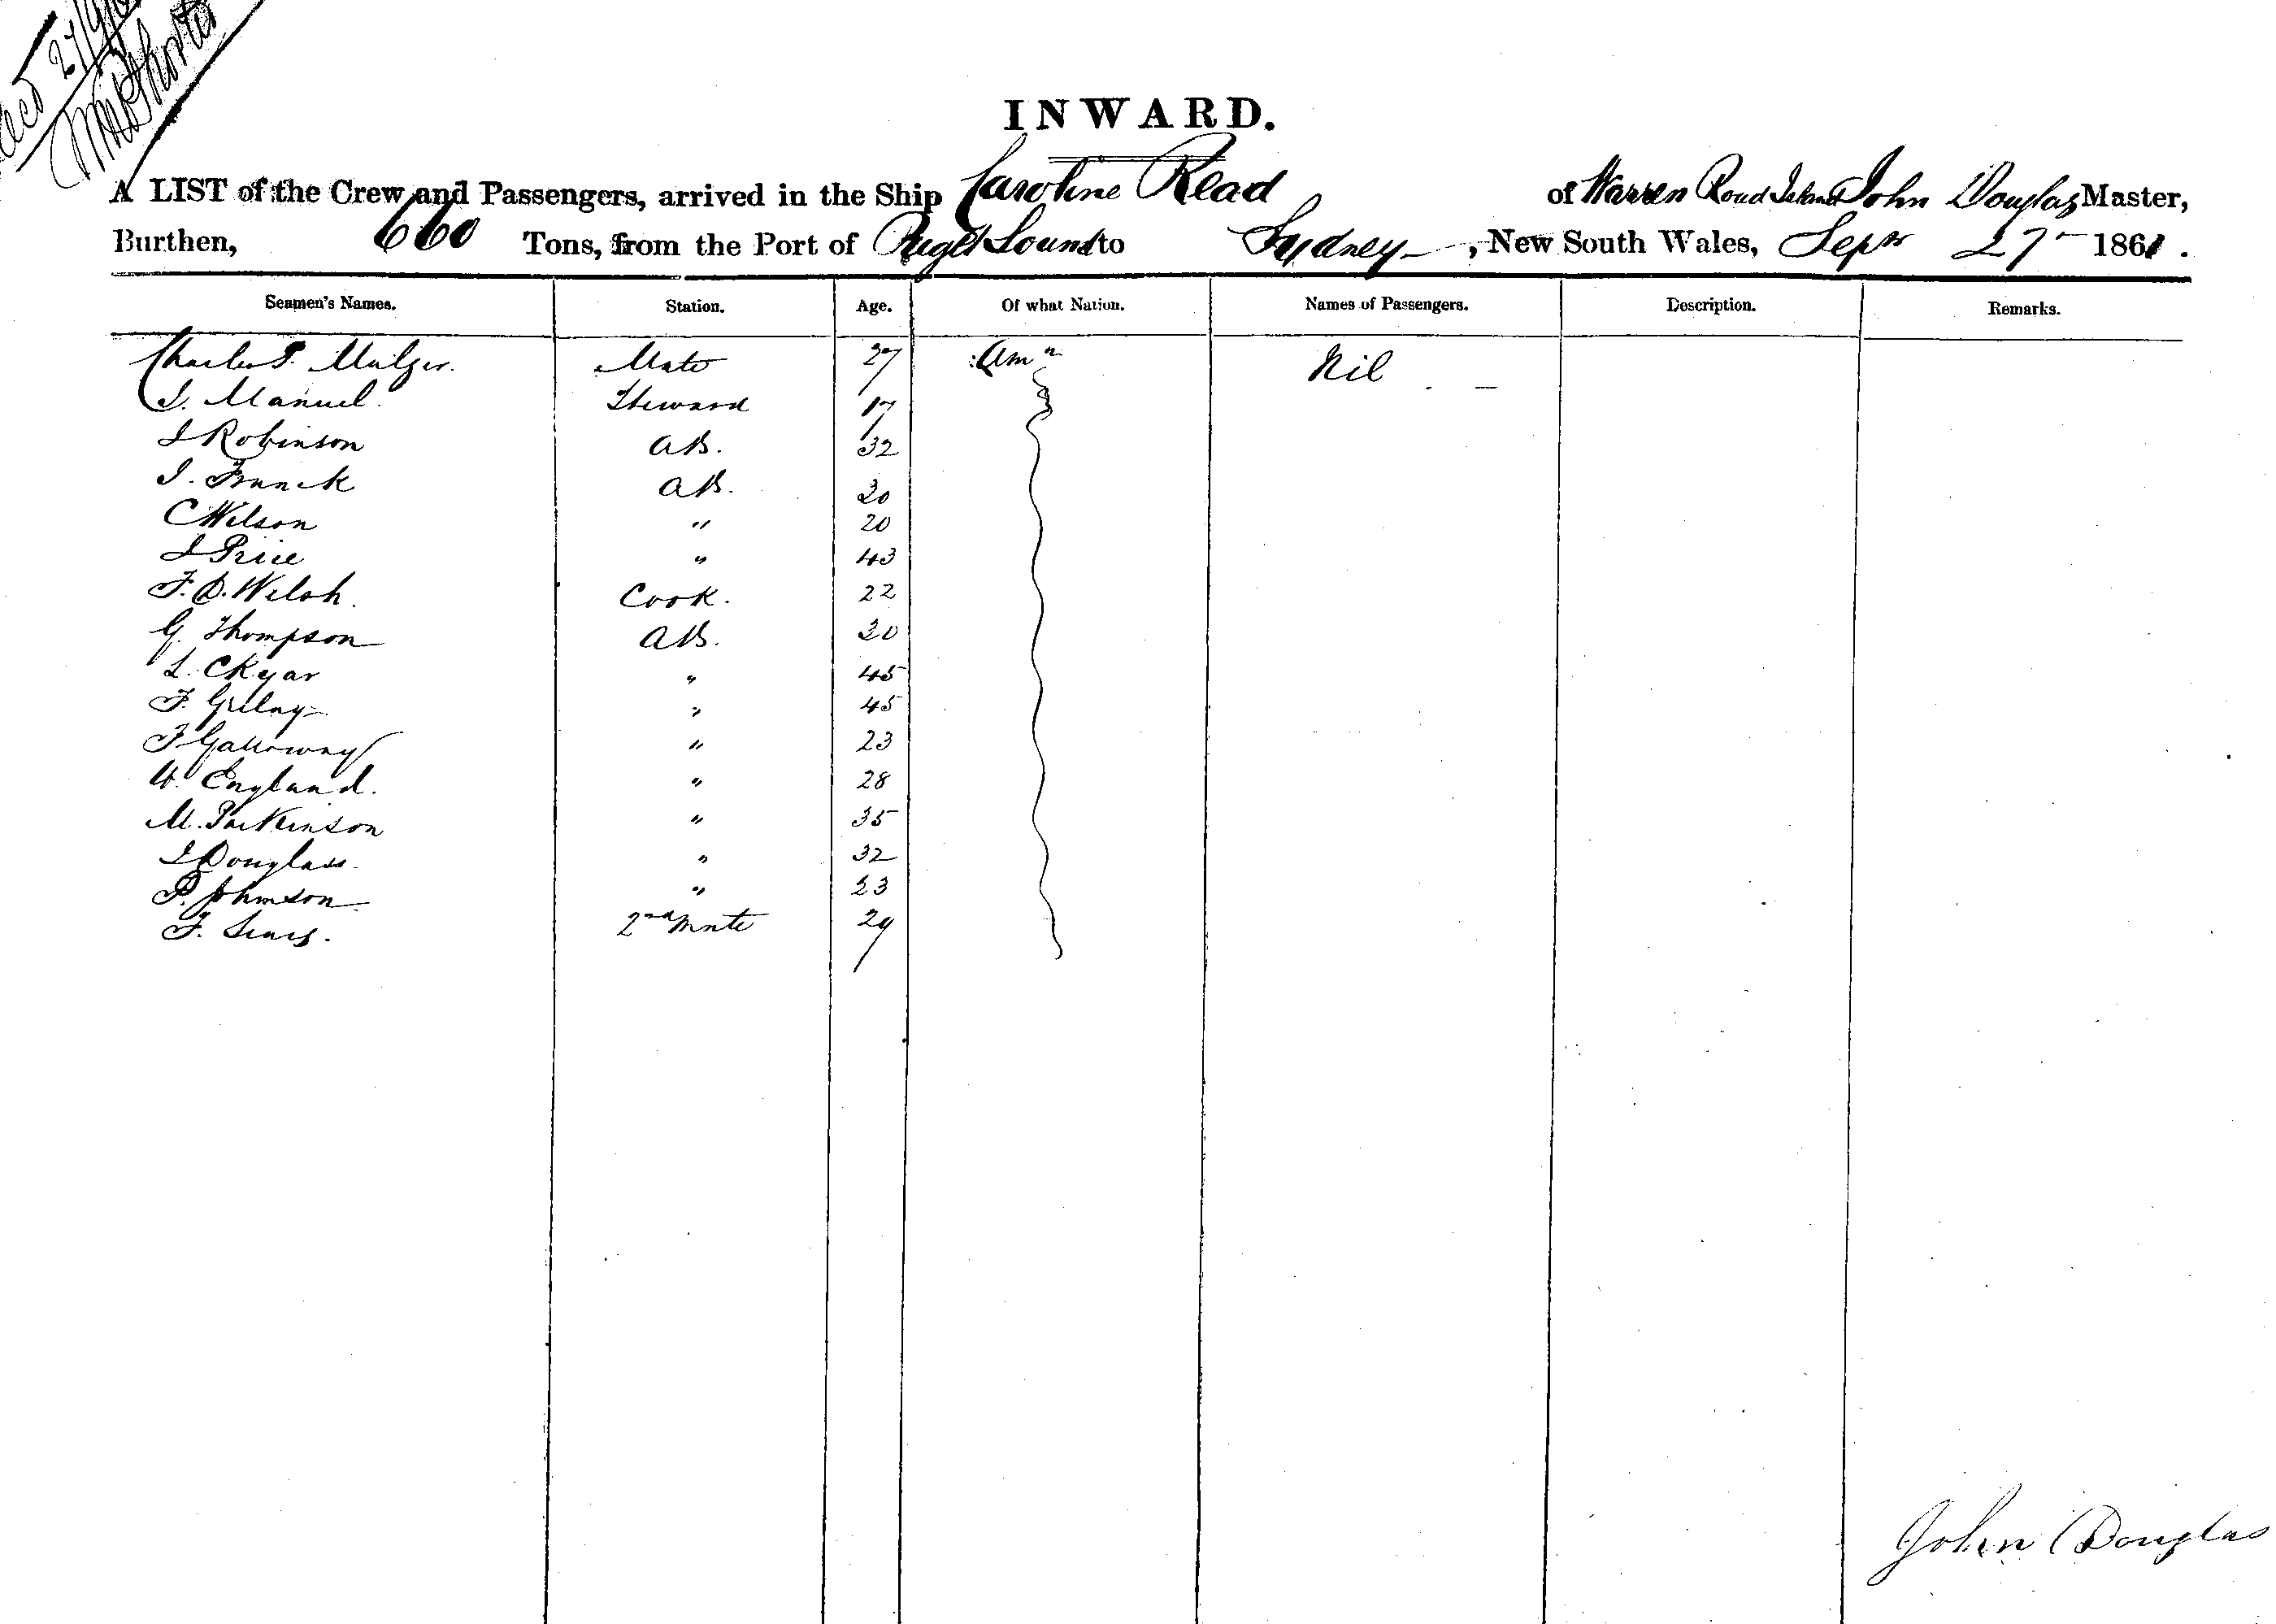 27/9/61
INWARD.
A LIST of the Crew and Passengers, arrived in the Ship Caroline Read of Warren Roud Island John Douglas Master,
Burthen, 660 Tons, from the Port of Puget Sound to Sydney, New South Wales, Sepr 27 1861.
Seamen's Names. Station. Age. Of what Nation. Names of Passengers. Description. Remarks.
Charles P. Mate 27 Amn Nil
J. Manuel. Steward 17
J Robinson AB. 32
J. Franck AB. 30
C Wilson " 20
J Price " 43
F. D. Welsh. Cook. 22
G. Thompson AB. 30
L. Ckyar " 45
F. " 45
F Galloway " 23
W. England. " 28
M. Parkinson " 35
J Douglass. " 32
P. Johnson " 23
F. 2nd Mate 29
John Douglas